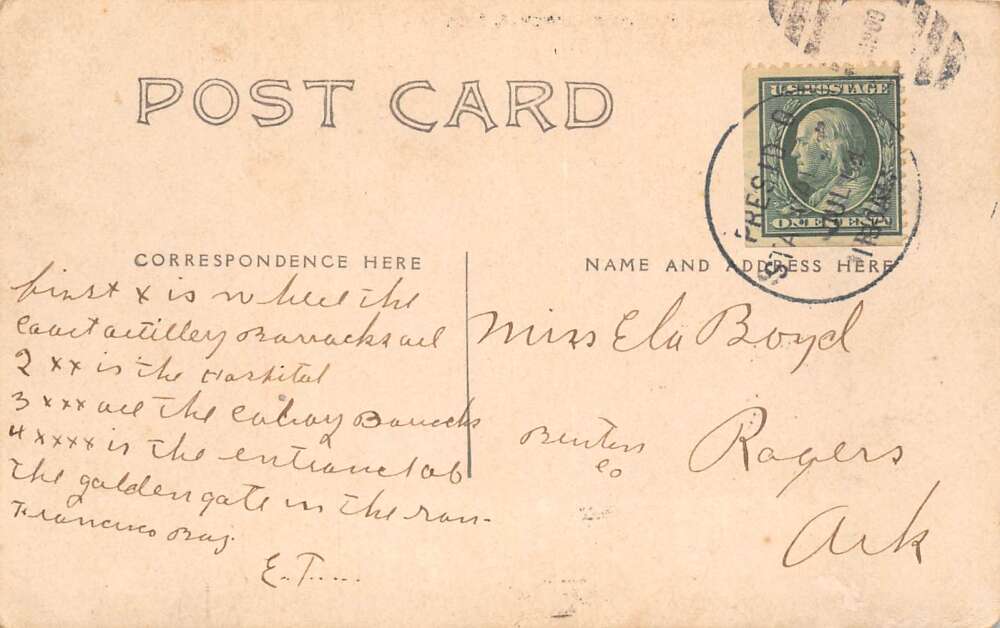 POST CARD
U.S. POSTAGE
ONE CENT
PRESIDIO
STA
JUL
CORRESPONDENCE HERE
NAME AND ADDRESS HERE
first x is where the
Coast artillery Barracks are
2 xx is the Hospital
3 xxx are the Calvary Barracks
4 xxxx is the entrance to
the golden gate in the San-
Francisco Bay.
E.T.....
Miss Ela Boyd
Benton
Co
Rogers
Ark